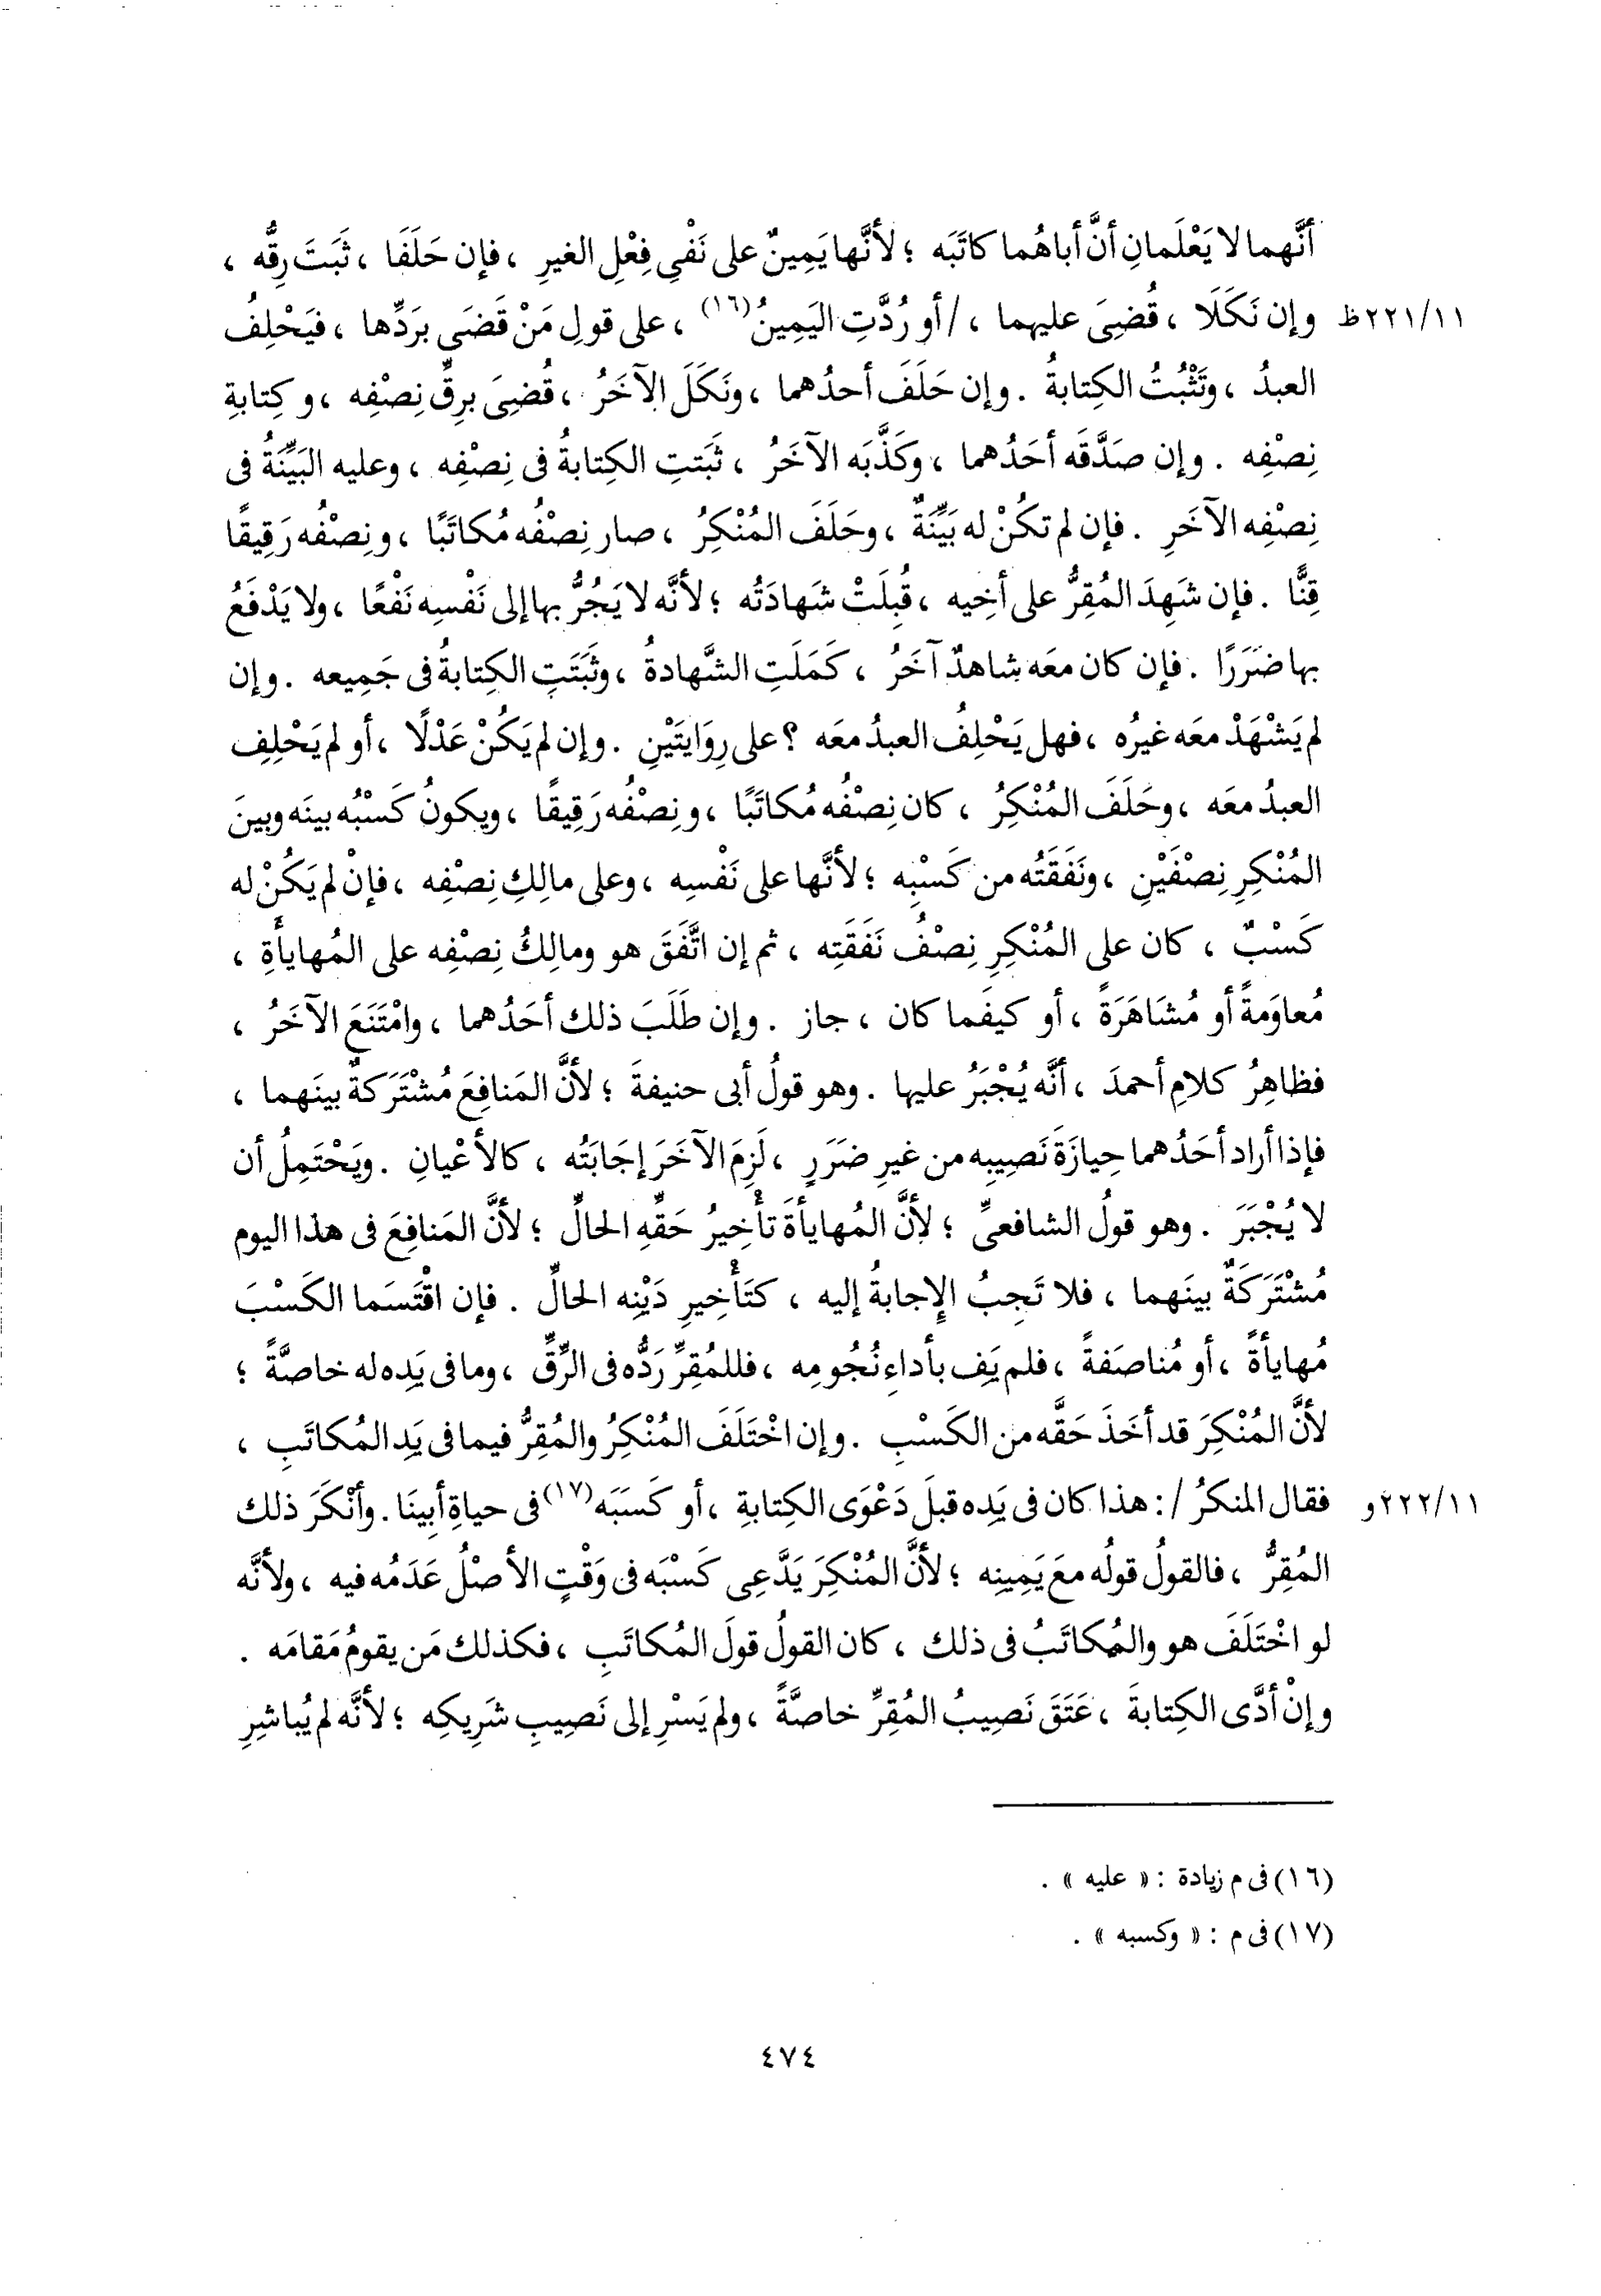 أنَّهما لا يَعْلَمانِ أنَّ أباهُما كاتَبَه ؛ لأنَّها يَمِينٌ على نَفْىِ فِعْلِ الغيرِ ، فإن حَلَفَا ، ثَبَتَ رِقُّه ،
١١/٢٢١ظ وإن نَكَلَا ، قُضِىَ عليهما ، / أو رُدَّتِ اليَمِينُ(١٦) ، على قولِ مَنْ قَضَى بَردِّها ، فيَحْلِفُ
العبدُ ، وتَثْبُتُ الكِتابةُ . وإن حَلَفَ أحدُهما ، ونَكَلَ الآخَرُ ، قُضِىَ برِقِّ نِصْفِه ، وكِتابةِ
نِصْفِه . وإن صَدَّقَه أحَدُهما ، وكَذَّبَه الآخَرُ ، ثَبَتتِ الكِتابةُ فى نِصْفِه ، وعليه البَيِّنَةُ فى
نِصْفِه الآخَرِ . فإن لم تكُنْ له بَيِّنَةٌ ، وحَلَفَ المُنْكِرُ ، صار نِصْفُه مُكاتَبًا ، ونِصْفُه رَقِيقًا
قِنًّا . فإن شَهِدَ المُقِرُّ على أخِيه ، قُبِلَتْ شَهادَتُه ؛ لأنَّه لا يَجُرُّ بها إلى نَفْسِه نَفْعًا ، ولا يَدْفَعُ
بها ضَرَرًا . فإن كان معَه شاهدٌ آخَرُ ، كَمَلَتِ الشَّهادةُ ، وثَبَتَتِ الكِتابةُ فى جَمِيعه . وإن
لم يَشْهَدْ معَه غيرُه ، فهل يَحْلِفُ العبدُ معَه ؟ على رِوَايَتَيْنِ . وإن لم يَكُنْ عَدْلًا ، أو لم يَحْلِفِ
العبدُ معَه ، وحَلَفَ المُنْكِرُ ، كان نِصْفُه مُكاتَبًا ، ونِصْفُه رَقِيقًا ، ويكونُ كَسْبُه بينَه وبينَ
المُنْكِرِ نِصْفَيْنِ ، ونَفَقَتُه من كَسْبِه ؛ لأنَّها على نَفْسِه ، وعلى مالِكِ نِصْفِه ، فإنْ لم يَكُنْ له
كَسْبٌ ، كان على المُنْكِرِ نِصْفُ نَفَقَتِه ، ثم إن اتَّفَقَ هو ومالِكُ نِصْفِه على المُهايأَةِ ،
مُعاوَمةً أو مُشَاهَرَةً ، أو كيفَما كان ، جاز . وإن طَلَبَ ذلك أحَدُهما ، وامْتَنَعَ الآخَرُ ،
فظاهِرُ كلامِ أحمدَ ، أنَّه يُجْبَرُ عليها . وهو قولُ أبى حنيفةَ ؛ لأنَّ المَنافِعَ مُشْتَرَكةٌ بينَهما ،
فإذا أراد أحَدُهما حِيازَةَ نَصِيبِه من غيرِ ضَرَرٍ ، لَزِمَ الآخَرَ إجَابَتُه ، كالأعْيانِ . ويَحْتَمِلُ أن
لا يُجْبَرَ . وهو قولُ الشافعىِّ ؛ لأنَّ المُهايأةَ تأْخِيرُ حَقِّهِ الحالِّ ؛ لأنَّ المَنافِعَ فى هذا اليوم
مُشْتَرَكَةٌ بينَهما ، فلا تَجِبُ الإِجابةُ إليه ، كتَأْخِيرِ دَيْنِه الحالِّ . فإن اقْتَسَما الكَسْبَ
مُهايأةً ، أو مُناصَفةً ، فلم يَفِ بأداءِ نُجُومِه ، فللمُقِرِّ رَدُّه فى الرِّقِّ ، وما فى يَدِه له خاصَّةً ؛
لأنَّ المُنْكِرَ قد أخَذَ حَقَّه من الكَسْبِ . وإن اخْتَلَفَ المُنْكِرُ والمُقِرُّ فيما فى يَدِ المُكاتَبِ ،
١١/٢٢٢و فقال المنكرُ / : هذا كان فى يَدِه قبلَ دَعْوَى الكِتابةِ ، أو كَسَبَه(١٧) فى حياةِ أبِينَا . وأنْكَرَ ذلك
المُقِرُّ ، فالقولُ قولُه معَ يَمِينِه ؛ لأنَّ المُنْكِرَ يَدَّعِى كَسْبَه فى وَقْتٍ الأصْلُ عَدَمُه فيه ، ولأنَّه
لو اخْتَلَفَ هو والمُكاتَبُ فى ذلك ، كان القولُ قولَ المُكاتَبِ ، فكذلك مَن يقومُ مَقامَه .
وإنْ أدَّى الكِتابةَ ، عَتَقَ نَصِيبُ المُقِرِّ خاصَّةً ، ولم يَسْرِ إلى نَصِيبِ شَرِيكِه ؛ لأنَّه لم يُباشِرِ
(١٦) فى م زيادة : « عليه » .
(١٧) فى م : « وكسبه » .
٤٧٤